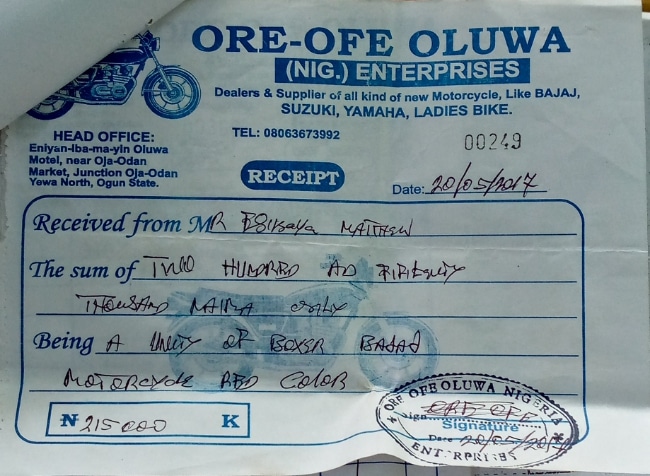 ORE-OFE OLUWA
(NIG.) ENTERPRISES
Dealers & Supplier of all kind of new Motorcycle, Like BAJAJ,
SUZUKI, YAMAHA, LADIES BIKE.
HEAD OFFICE:
Eniyan-Iba-ma-yin Oluwa
Motel, near Oja-Odan
Market, Junction Oja-Odan
Yewa North, Ogun State.
TEL: 08063673992
00249
RECEIPT
Date: 20/05/2017
Received from MR MATTHEW
The sum of TWO HUNDRED AD
THOUSAND NAIRA ONLY
Being A UNITY OF BOXER BAJAJ
MOTORCYCLE RED COLOR
₦ 215000 K
ORE OFE OLUWA NIGERIA
Sign ORE OFE
Signature
Date
ENTERPRISES